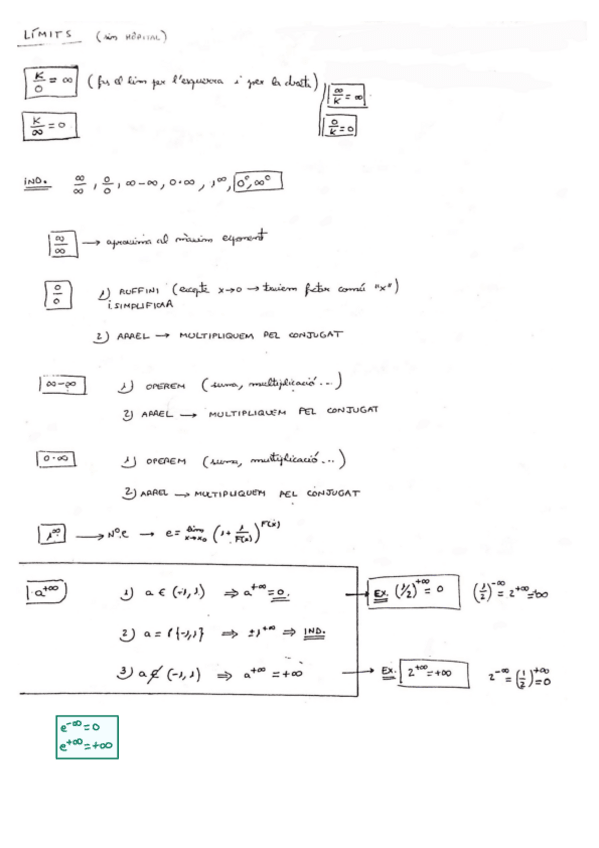 LÍMITS (sin HÔPITAL)
K/0 = ∞ (fer el lim per l'esquerra i per la dreta) ∞/K = ∞
K/∞ = 0 0/K = 0
IND. ∞/∞, 0/0, ∞-∞, 0·∞, 1^∞, 0^0, ∞^0
∞/∞ → aproxima al màxim exponent
0/0 1) RUFFINI (excepte x→0 → traiem factor comú "x")
i SIMPLIFICAR
2) ARREL → MULTIPLIQUEM PEL CONJUGAT
∞-∞ 1) OPEREM (suma, multiplicació...)
2) ARREL → MULTIPLIQUEM PEL CONJUGAT
0·∞ 1) OPEREM (suma, multiplicació...)
2) ARREL → MULTIPLIQUEM PEL CONJUGAT
1^∞ → Nº e → e = lim x→x₀ (1 + 1/F(x))^F(x)
a^+∞ 1) a ∈ (-1,1) ⇒ a^+∞ = 0. → EX. (1/2)^+∞ = 0 (1/2)^-∞ = 2^+∞ = +∞
2) a = {-1,1} ⇒ ±1^+∞ ⇒ IND.
3) a ∉ (-1,1) ⇒ a^+∞ = +∞ → EX. 2^+∞ = +∞ 2^-∞ = (1/2)^+∞ = 0
e^-∞ = 0
e^+∞ = +∞